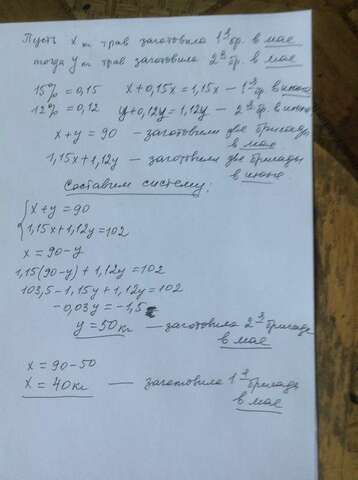 Пусть x кг трав заготовила 1ᵃ бр. в мае
тогда y кг трав заготовила 2ᵃ бр. в мае
15% = 0,15 x + 0,15x = 1,15x – 1ᵃ бр. в июне
12% = 0,12 y + 0,12y = 1,12y – 2ᵃ бр. в июне
x + y = 90 – заготовили две бригады
в мае
1,15x + 1,12y – заготовили две бригады
в июне.
Составим систему:
{x + y = 90
1,15x + 1,12y = 102
x = 90 – y
1,15(90 – y) + 1,12y = 102
103,5 – 1,15y + 1,12y = 102
– 0,03y = – 1,5
y = 50 кг – заготовила 2ᵃ бригада
в мае
x = 90 – 50
x = 40 кг — заготовила 1ᵃ бригада
в мае